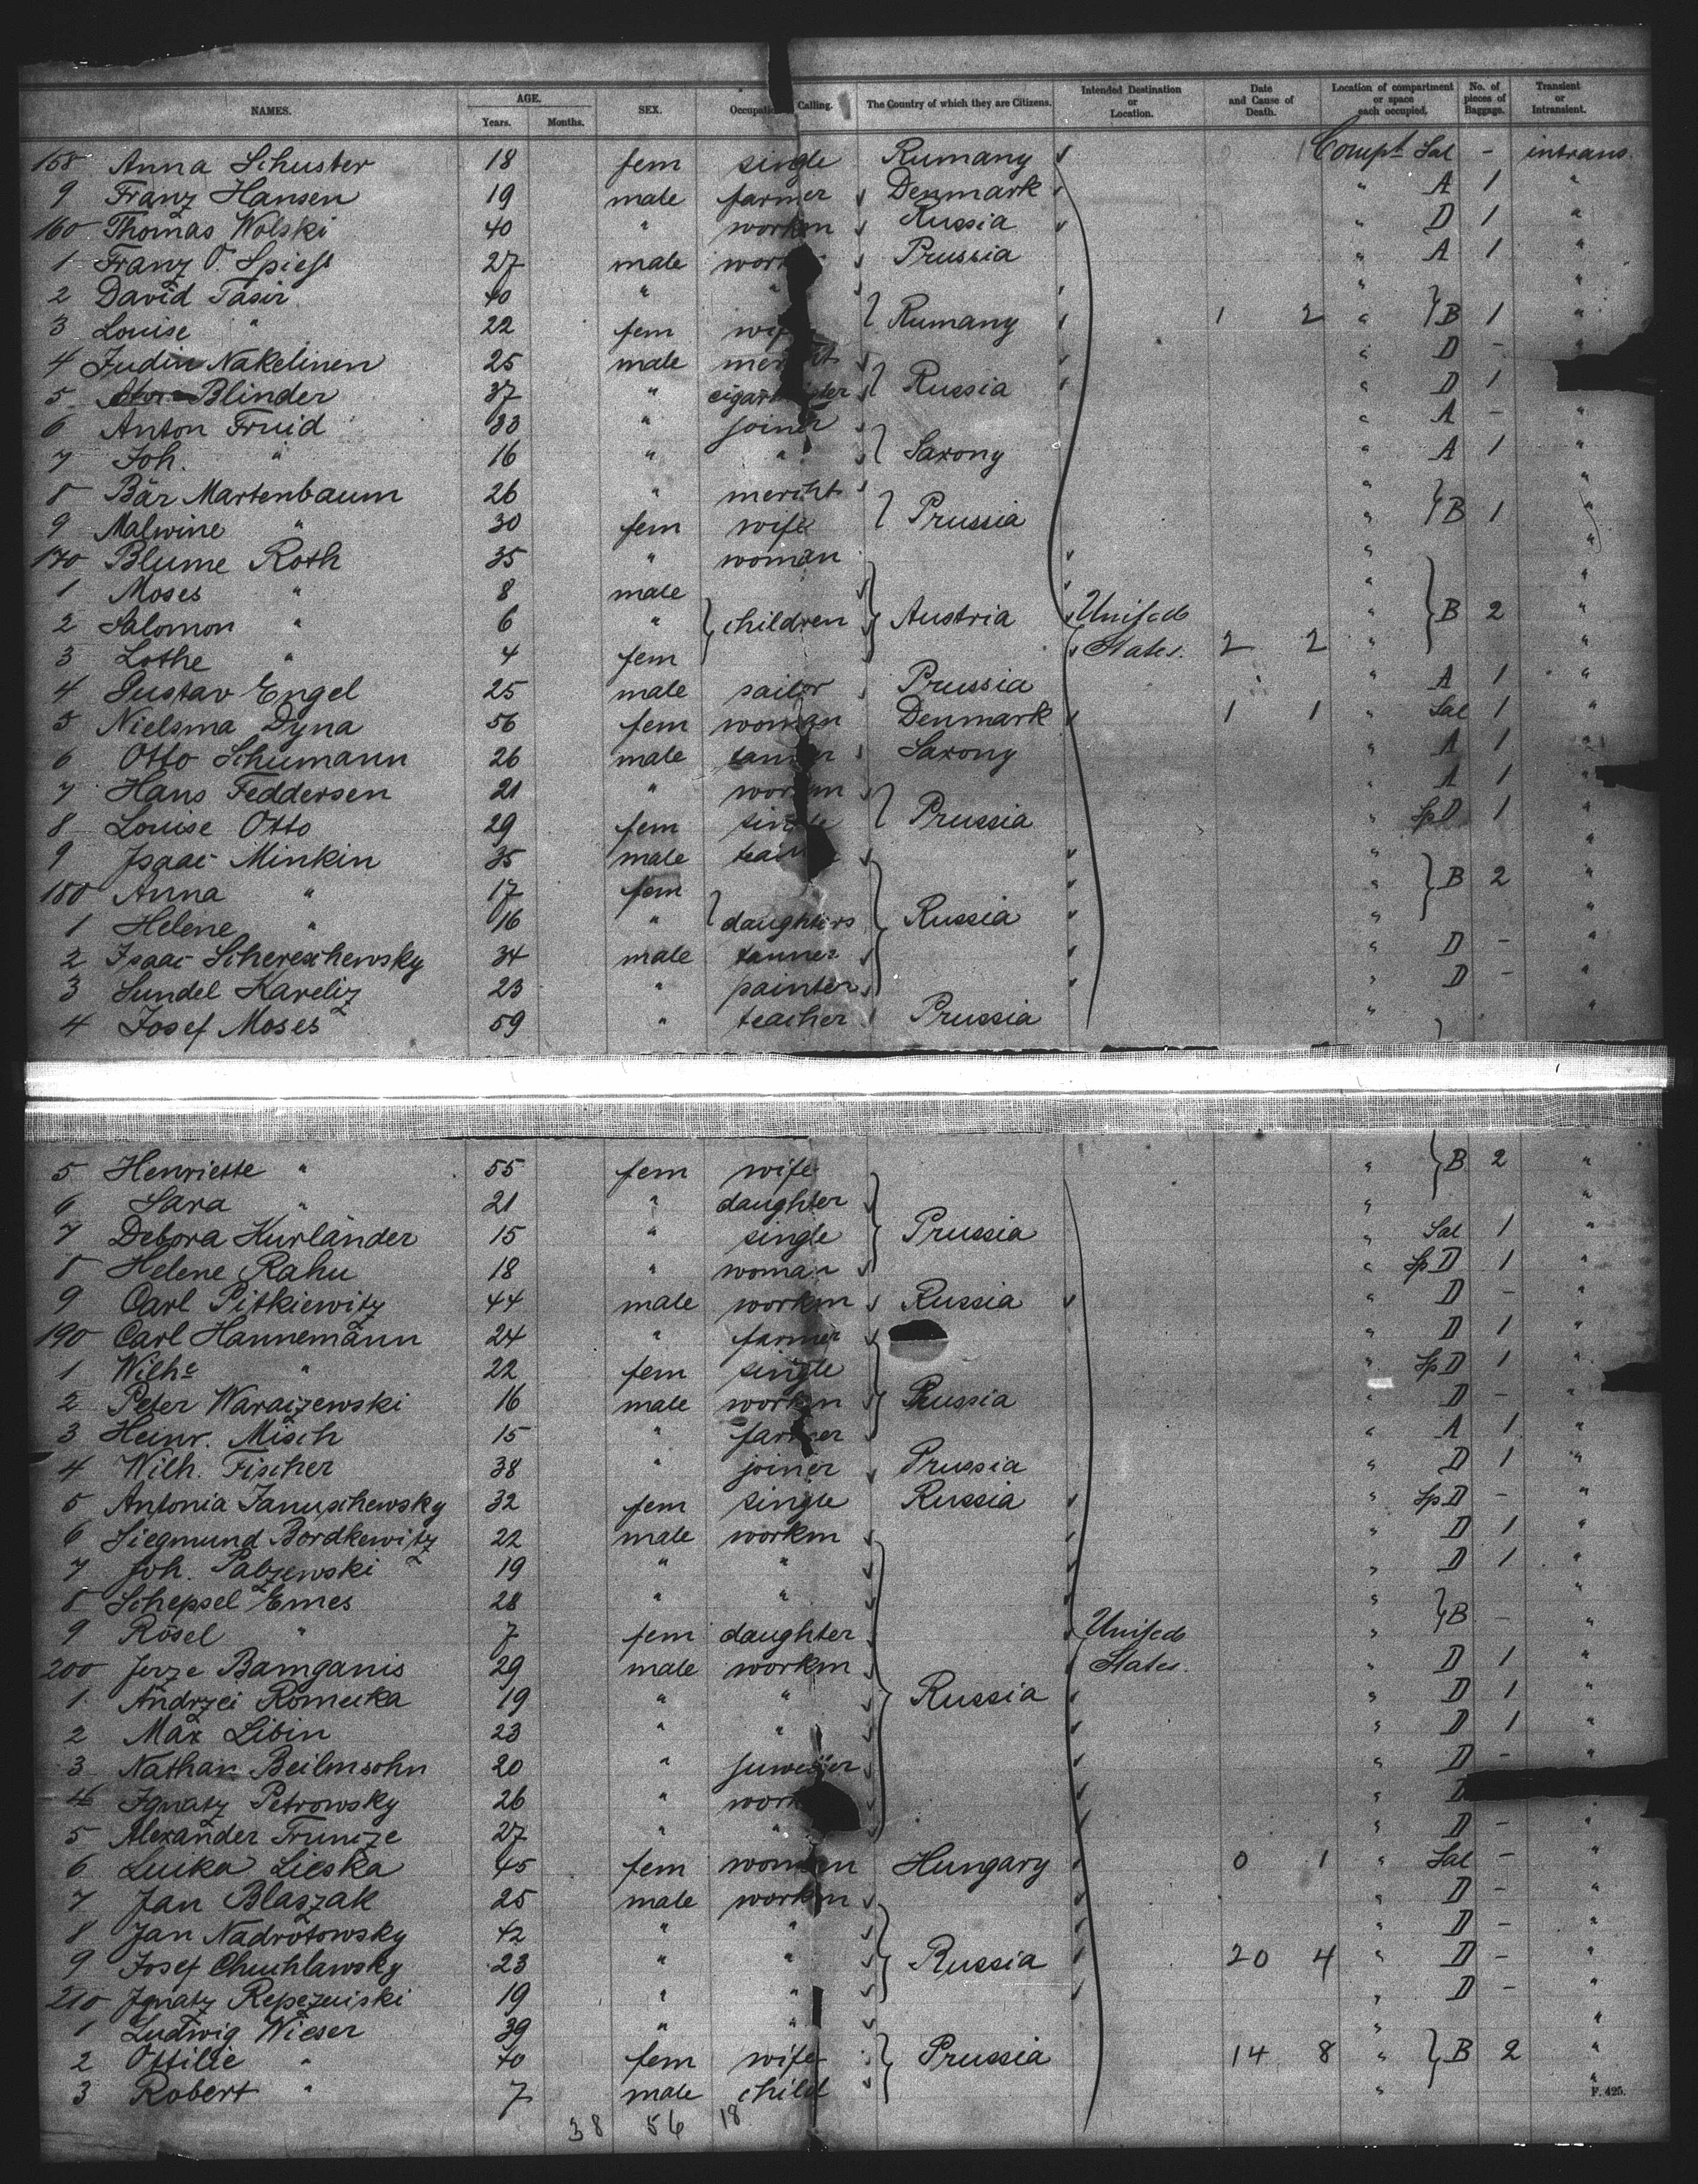 NAMES. AGE. Years. Months. SEX. Occupation Calling. The Country of which they are Citizens. Intended Destination or Location. Date and Cause of Death. Location of compartment or space each occupied. No. of pieces of Baggage. Transient or Intransient.
158 Anna Schuster 18 fem single Rumany Compt Sal - intrans.
9 Franz Hansen 19 male farmer Denmark " A 1 "
160 Thomas Wolski 40 " workm Russia " D 1 "
1 Franz O. Spiess 27 male work Prussia " A 1 "
2 David Tasir 40 " " "
3 Louise " 22 fem wife Rumany 1 2 " B 1 "
4 Judin Nakelinen 25 male mercht " D -
5 Blinder 37 " Russia " D 1
6 Anton Fruid 33 " joiner " A - "
7 Joh. " 16 " " Saxony " A 1 "
8 Bär Martenbaum 26 " mercht " "
9 Malwine " 30 fem wife Prussia " B 1 "
170 Blume Roth 35 " woman " "
1 Moses " 8 male " "
2 Salomon " 6 " children Austria United " B 2 "
3 Lothe " 4 fem States. 2 2 " "
4 Gustav Engel 25 male sailor Prussia " A 1 "
5 Nielsma Dyna 56 fem woman Denmark 1 1 " Sal 1 "
6 Otto Schumann 26 male tanner Saxony " A 1 "
7 Hans Feddersen 21 " workm " A 1 "
8 Louise Otto 29 fem single Prussia " Sp D 1 "
9 Isaac Minkin 35 male " "
180 Anna " 17 fem " B 2 "
1 Helene " 16 " daughters Russia " "
2 Isaac Schereschewsky 34 male tanner " D - "
3 Sundel Kareliz 23 " painter " D - "
4 Josef Moses 59 " teacher Prussia " "
5 Henriette " 55 fem wife " B 2 "
6 Sara " 21 " daughter " "
7 Debora Kurländer 15 " single Prussia " Sal 1 "
8 Helene Rahn 18 " woman " Sp D 1 "
9 Carl Pitkiewitz 44 male workm Russia " D - "
190 Carl Hannemann 24 " farmer " D 1 "
1 Wilhe " 22 fem single " Sp D 1 "
2 Peter Waraizewski 16 male workm Prussia " D - "
3 Heinr. Misch 15 " farmer " A 1 "
4 Wilh. Fischer 38 " joiner Prussia " D 1 "
5 Antonia Januschewsky 32 fem single Russia " Sp D - "
6 Siegmund Bordkewitz 22 male workm " D 1 "
7 Joh. Palzewski 19 " " " D 1 "
8 Schepsel Emes 28 " " " "
9 Rösel " 7 fem daughter United " B - "
200 Jerze Bamganis 29 male workm States. " D 1 "
1 Andrzei Romeika 19 " " Russia " D 1 "
2 Max Libin 23 " " " D 1 "
3 Nathan Beilinsohn 20 " juwelier " D - "
4 Ignatz Petrowsky 26 " work " D
5 Alexander 27 " " " D - "
6 Luika Lieska 45 fem woman Hungary 0 1 " Sal - "
7 Jan Blaszak 25 male workm " D - "
8 Jan Nadrotowsky 42 " " " D - "
9 Josef Chuchlawsky 23 " " Russia 20 4 " D - "
210 Ignatz 19 " " " D - "
1 Ludwig Wieser 39 " " " "
2 Ottilie " 40 fem wife Prussia 14 8 " B 2 "
3 Robert " 7 male child " "
F. 425.
38 56 18